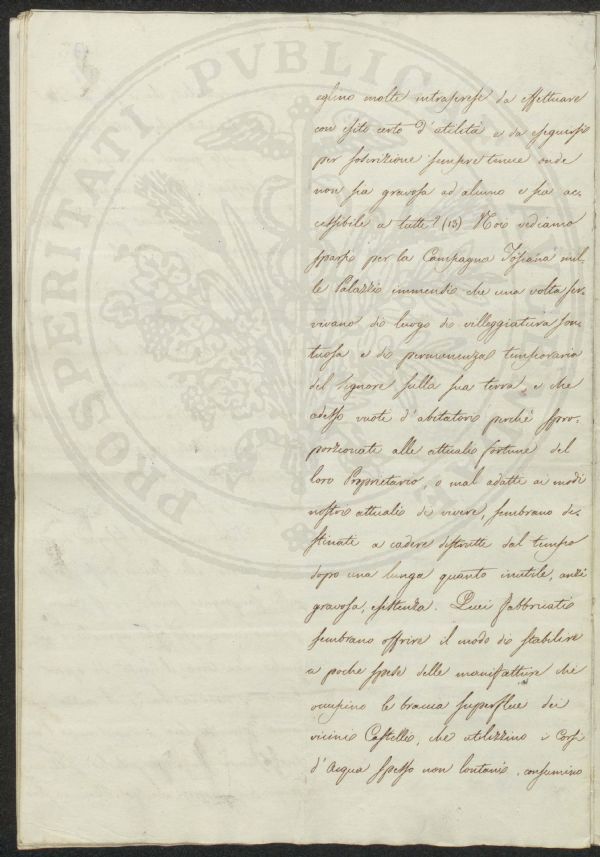 PROSPERITATI PUBLICAE
eglino molte intraprese da effettuare
con esito certo d'utilità e da eseguirsi
per soscrizione sempre tenue onde
non sia gravosa ad alcuno e sia ac-
cessibile a tutti? (13) Noi vediamo
sparsi per la Campagna Toscana mil-
le Palazzi immensi che una volta ser-
vivano di luogo di villeggiatura son-
tuosa e di permanenza temporaria
del signore sulla sua terra, e che
adesso vuoti d'abitatori perché spro-
porzionati alle attuali fortune del
loro Proprietario, o mal adatti ai modi
nostri attuali di vivere, sembrano de-
stinati a cadere distrutti dal tempo
dopo una lunga quanto inutile, anzi
gravosa, esistenza. Quei fabbricati
sembrano offrire il modo di stabilire
a poche spese delle manifatture che
occupino le braccia superflue dei
vicini Castelli, che utilizzino i Corsi
d'Acqua spesso non lontani, consumino